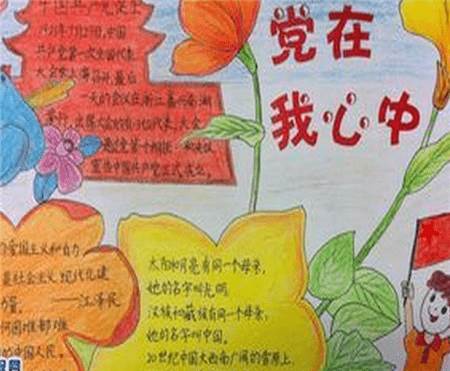 党在
我心中
中国共产党
1921年7月23日,中国
共产党第一次全国代表
大会在上海召开,最后
一天的会议在浙江嘉兴南湖
举行,出席大会的有13位代表,大会
宣告中国共产党正式成立。
爱国主义和自力
是社会主义现代化建
力量。 ——江泽民
何困难都难
的中国人民。
太阳和月亮有同一个母亲,
她的名字叫光明,
汉族和藏族有同一个母亲,
她的名字叫中国。
20世纪中国大西南广阔的雪原上,